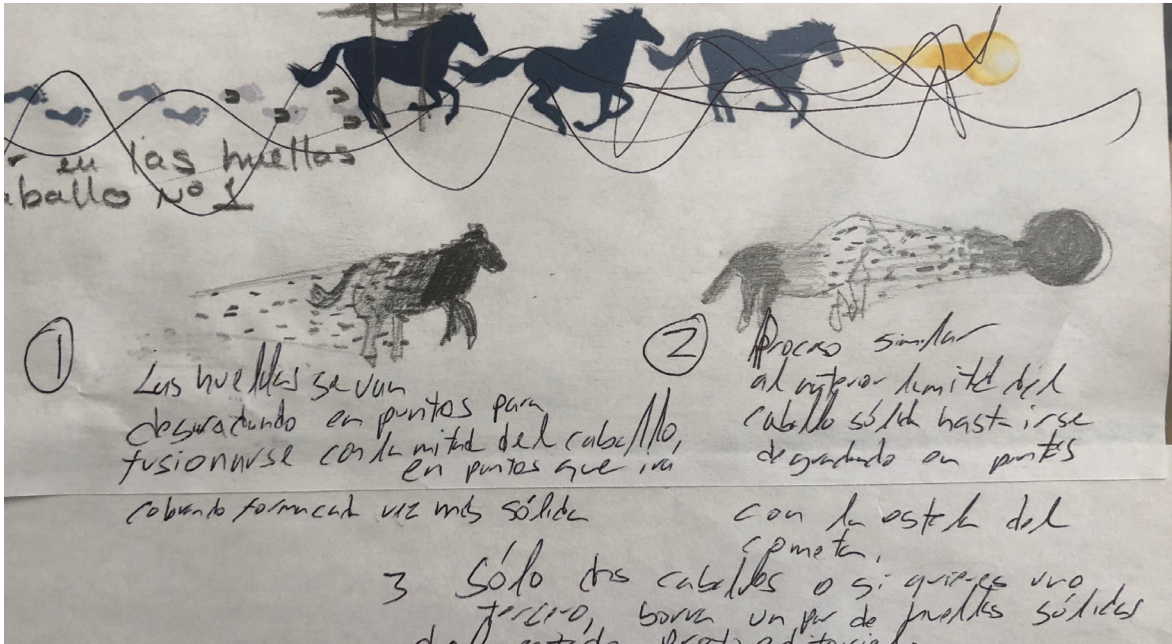 en las huellas
Nº 1
1
Las huellas se van
degradando en puntos para
fusionarse con la mitad del caballo,
en puntos que irá
cobrando forma cada vez más sólida
2
Proceso similar
al anterior la mitad del
caballo sólida hasta irse
degradado en puntos
con la estela del
cometa,
3 Sólo dos caballos o si quieres uno
tercero, borra un par de huellas sólidas